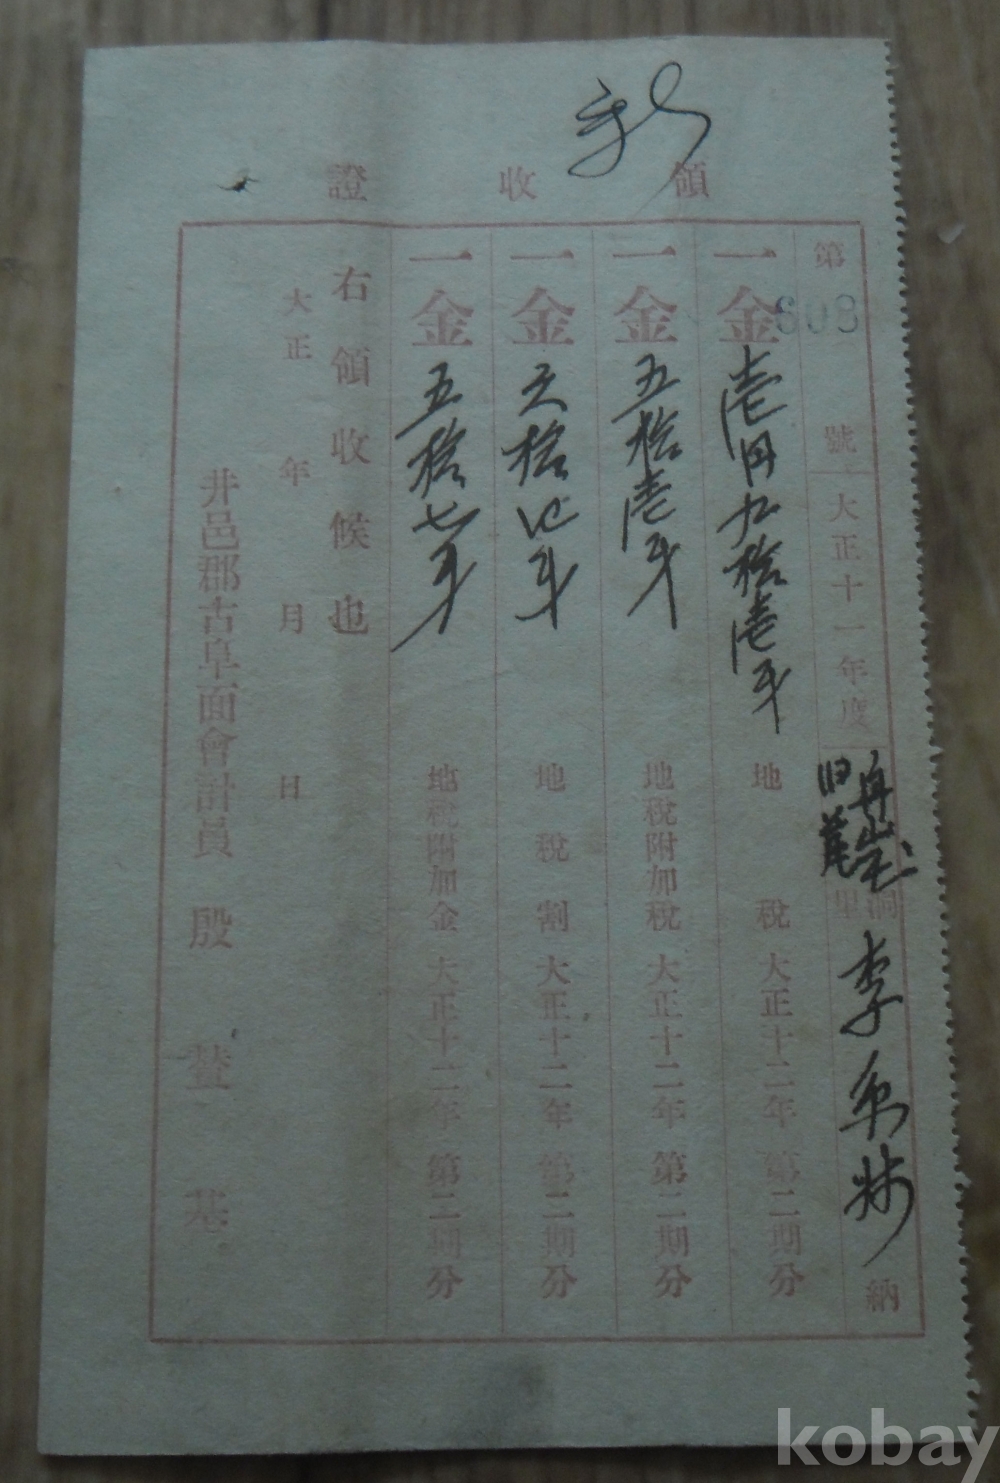 領收證
第608號
大正十一年度
洞里
李
納
一金壱円九拾壱戋 地稅 大正十二年第二期分
一金五拾壱戋 地稅附加稅 大正十二年第二期分
一金 地稅割 大正十二年第二期分
一金五拾七戋 地稅附加金 大正十二年第二期分
右領收候也
大正 年 月 日
井邑郡古阜面會計員 殷 基
kobay